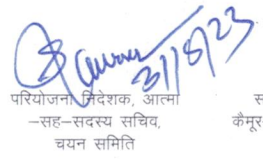 31/8/23
परियोजना निदेशक, आत्मा स
-सह-सदस्य सचिव, कैमूर
चयन समिति